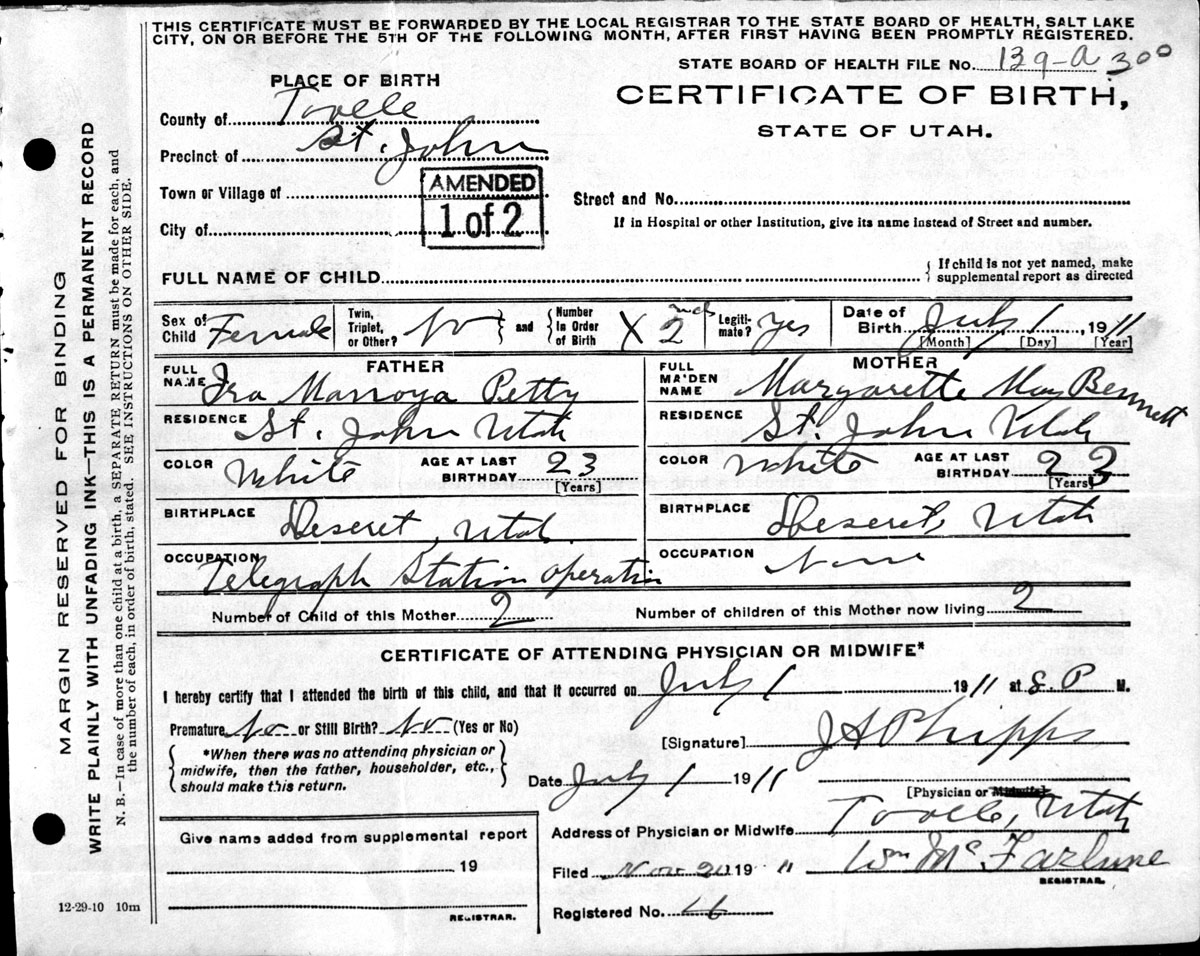 THIS CERTIFICATE MUST BE FORWARDED BY THE LOCAL REGISTRAR TO THE STATE BOARD OF HEALTH, SALT LAKE
CITY, ON OR BEFORE THE 5TH OF THE FOLLOWING MONTH, AFTER FIRST HAVING BEEN PROMPTLY REGISTERED.
STATE BOARD OF HEALTH FILE No. 139-a 300
PLACE OF BIRTH
CERTIFICATE OF BIRTH,
STATE OF UTAH.
County of Tooele
Precinct of St. John
Town or Village of
AMENDED
1 of 2
Street and No.
If in Hospital or other Institution, give its name instead of Street and number.
City of
FULL NAME OF CHILD
If child is not yet named, make
supplemental report as directed
Sex of Child Female Twin, Triplet, or Other? No and Number In Order of Birth X 2nd Legiti- mate? Yes Date of Birth July 1, 1911
[Month] [Day] [Year]
FATHER MOTHER
FULL NAME Ira Marroya Petty FULL MAIDEN NAME Margarette May Bennett
RESIDENCE St. John Utah RESIDENCE St. John Utah
COLOR White AGE AT LAST BIRTHDAY 23 [Years] COLOR White AGE AT LAST BIRTHDAY 23 [Years]
BIRTHPLACE Deseret, Utah BIRTHPLACE Deseret, Utah
OCCUPATION Telegraph Station operator OCCUPATION None
Number of Child of this Mother 2 Number of children of this Mother now living 2
CERTIFICATE OF ATTENDING PHYSICIAN OR MIDWIFE*
I hereby certify that I attended the birth of this child, and that it occurred on July 1 1911 at 8 P M.
Premature No or Still Birth? No (Yes or No)
*When there was no attending physician or
midwife, then the father, householder, etc.,
should make this return.
[Signature] J A Phipps
Date July 1 1911
[Physician or Midwife]
Give name added from supplemental report
19
REGISTRAR.
Address of Physician or Midwife Tooele, Utah
Filed Nov 20 19 11 Wm McFarlane
REGISTRAR.
Registered No. 46
12-29-10 10m
MARGIN RESERVED FOR BINDING
WRITE PLAINLY WITH UNFADING INK—THIS IS A PERMANENT RECORD
N. B.—In case of more than one child at a birth, a SEPARATE RETURN must be made for each, and
the number of each, in order of birth, stated. SEE INSTRUCTIONS ON OTHER SIDE.